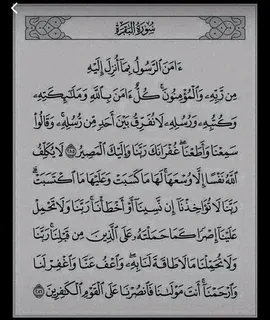 سُورَةُ البَقَرَةِ
ءَامَنَ الرَّسُولُ بِمَا أُنزِلَ إِلَيْهِ
مِن رَّبِّهِ وَالْمُؤْمِنُونَ ۚ كُلٌّ ءَامَنَ بِاللَّهِ وَمَلَٰئِكَتِهِ
وَكُتُبِهِ وَرُسُلِهِ لَا نُفَرِّقُ بَيْنَ أَحَدٍ مِّن رُّسُلِهِ ۚ وَقَالُوا
سَمِعْنَا وَأَطَعْنَا ۖ غُفْرَانَكَ رَبَّنَا وَإِلَيْكَ الْمَصِيرُ ٢٨٥ لَا يُكَلِّفُ
اللَّهُ نَفْسًا إِلَّا وُسْعَهَا ۚ لَهَا مَا كَسَبَتْ وَعَلَيْهَا مَا اكْتَسَبَتْ ۗ
رَبَّنَا لَا تُؤَاخِذْنَا إِن نَّسِينَا أَوْ أَخْطَأْنَا ۚ رَبَّنَا وَلَا تَحْمِلْ
عَلَيْنَا إِصْرًا كَمَا حَمَلْتَهُ عَلَى الَّذِينَ مِن قَبْلِنَا ۚ رَبَّنَا
وَلَا تُحَمِّلْنَا مَا لَا طَاقَةَ لَنَا بِهِ ۖ وَاعْفُ عَنَّا وَاغْفِرْ لَنَا
وَارْحَمْنَا ۚ أَنتَ مَوْلَىٰنَا فَانصُرْنَا عَلَى الْقَوْمِ الْكَٰفِرِينَ ٢٨٦